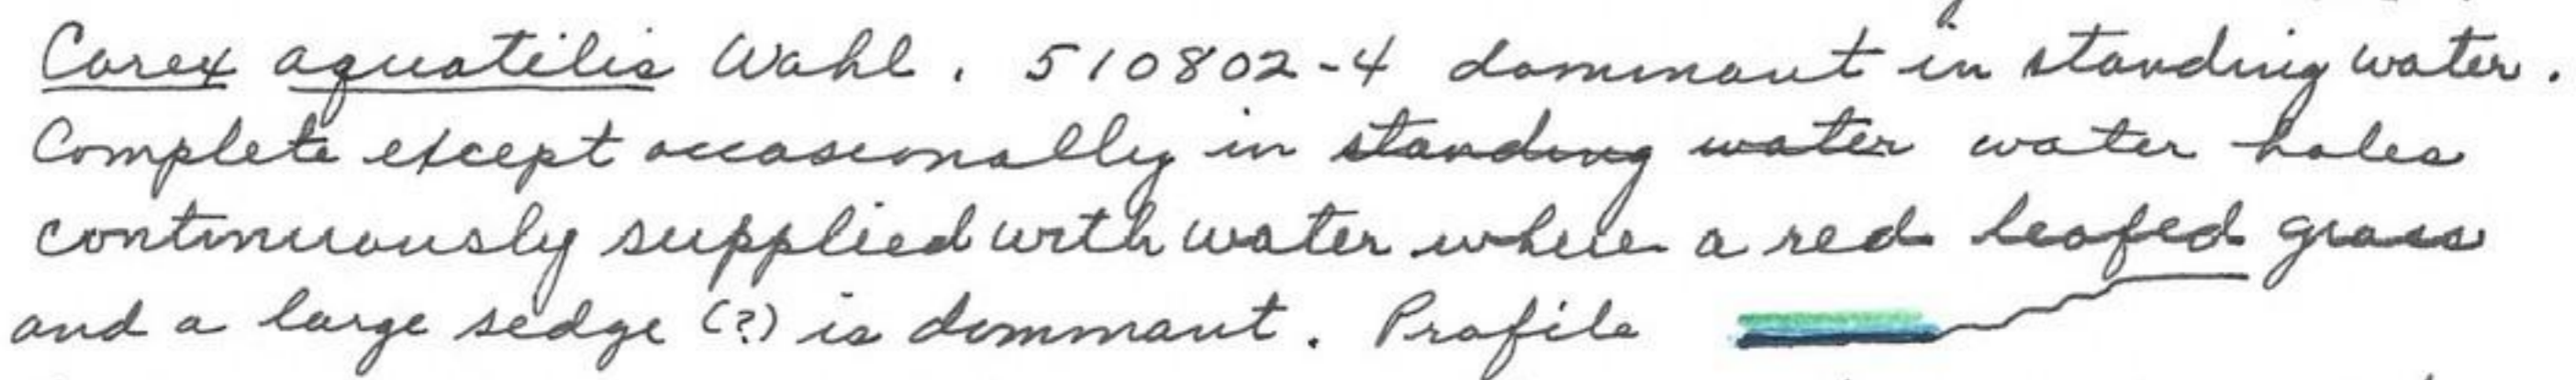 Carex aquatilis Wahl. 510802-4 dominant in standing water.
Complete except occasionally in standing water water holes
continuously supplied with water where a red leafed grass
and a large sedge (?) is dominant. Profile